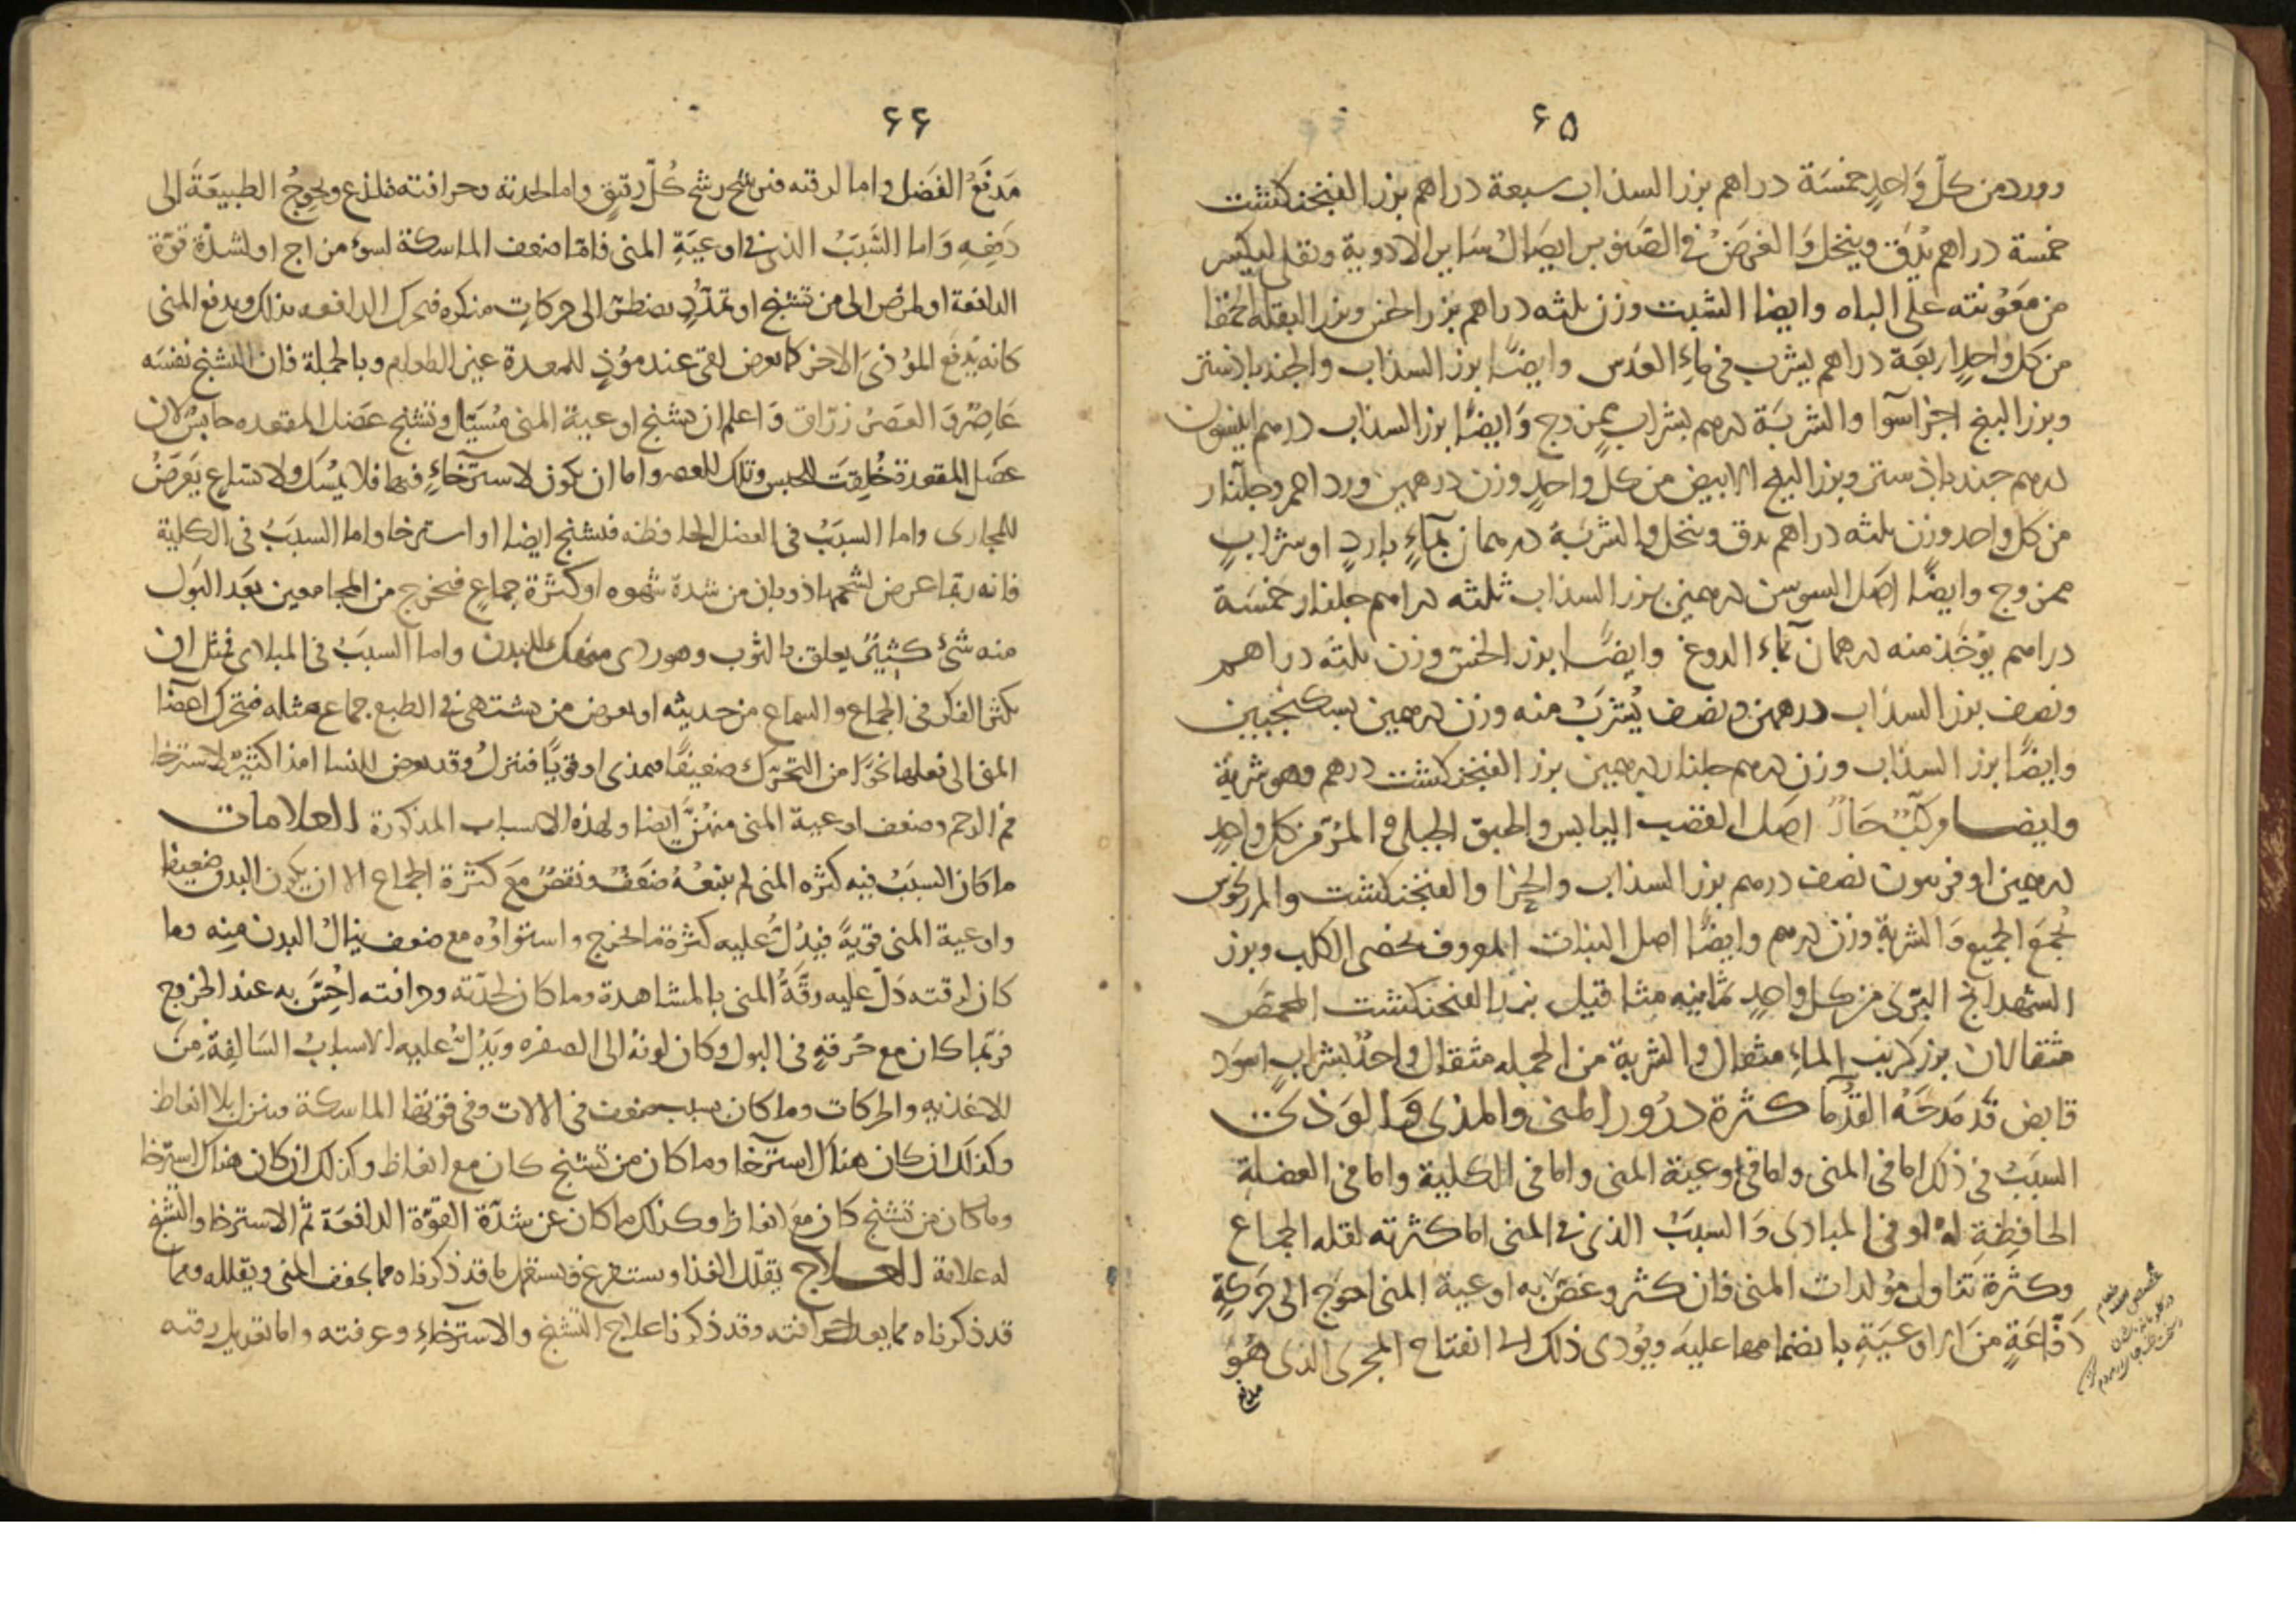 ۶۵
وورد من كلّ وَاحدٍ خمسَة دراهم بزر السذاب سبعة دراهم بزر الفنجنكشت
خمسة دراهم يُدَق وينخل وَالغرضُ في ايصَالُ سَاير الادوية وتقلى ليكسر
من مَعَوُنته على الباه وايضا الشبت وزن ثلثه دراهم بزر الخس وبزر البقلة الحمقا
من كل واحدٍ اربعَة دراهم يشرب في مَاءِ العَدَس وايضًا بزر السذاب والجندبادستر
وبزر البنج اجزا سوا والشربَة درهم بشرابٍ ممزوج وَايضًا بزر السذاب درهم انيسون
درهم جندباذستر وبزر البنج الابيض من كل واحدٍ وزن درهمين ورد احمر وجلنار
من كل واحد وزن ثلثه دراهم يدق وينخل والشربَة درهمان بمآءٍ باردٍ او شرابٍ
ممزوج وايضًا اصَل السوسن درهمين بزر السذاب ثلثه دراهم جلنار خمسَة
دراهم يؤخَذ منه درهمان بماء الدوغ وايضًا بزر الخس وزن ثلثه دراهم
ونصف بزر السذاب درهمين ونصف يُشرَبُ منه وزن درهمين بسكنجبين
وايضًا بزر السذاب وزن درهم جلنار درهمين بزر الفنجنكشت درهم وهو شربة
وايضا مركبٌ حَارٌ اصَل القصب اليابس والحبق الجبلي من كل واحدٍ
درهمين نصف درهم بزر السذاب والفنجنكشت والمرزنجوش
يُجمَع الجميع وَالشربة وزن درهم وايضًا اصل النبات المعروف بخصى الكلب وبزر
الشهدانج البرّى من كل واحدٍ ثمانيه مثاقيل بزر الفنجنكشت المحمّص
مثقالان بزر كرنب الماءِ مثقال والشربة من الجمله مثقال واحدٌ بشرابٍ اسوَد
قابض قَد مَدحَهُ القدُما كثرة درُور المنى والمذى وَالوَذى
السبَبُ في ذلك اما في المنى واما في اوعيَة المنى واما في الكلية واما في العضلة
الحافِظةِ لهُ او في المبادى وَالسببَ الذى في المنى اما كثرته لقله الجماع
وكثرة تناول مؤلدات المنى فان كثر وغصّ به اوعية المنى احوَج الى حَركةٍ
دَفّاعَةٍ منَ الاوعيَةِ بانضمامها عليه ويؤدى ذلك الى انفتاح المجرى الذى هُوَ
مدفع
۶۶
مَدفَعُ الفَضل واما لرقته فيرشح رشح كُلّ رقيق واما لحدته وحرافته فلذع ويحوجُ الطبيعَةَ الى
دَفعِهِ وَاما السَّبَبُ الذى في اوعيَةِ المنى فامّا ضعف الماسكة لسوء مزاج او لشدّة قوّة
الدافعة او لمرض الى من تشنج او تمدّدٍ يضطر الى حركاتٍ منكره فيحرك الدافعه بذلك ويدفع المنى
كانه يَدفع المؤذىَ الاخر كما يعرض لقى عند مؤذٍ للمعدة غير الطعام وبالجملة فان التشنج نفسَه
عَاصرٌ وَالعَصَرُ زرّاق وَاعلم ان تشنج اوعية المنى مُسَيّل وتشنج عَضل المقعده حابسٌ لان
عضَل المقعدة خُلِقت للحبس وتلك للعصر واما ان يكون لاسترخاءٍ فيها فلا يمُسَك ولاتساعٍ يَعرَضُ
للمجارى واما السبَبُ في العضل الحافظه فتشنج ايضا او استرخا واما السبَبُ في الكلية
فانه ربما عرض لشحمها ذوبان من شدة شهوه او كثرة جماعٍ فيخرج من المجامعين بعَد البَول
منه شئ كثيرٌ يعلق بالثوب وهو ردى منهك للبدن واما السببُ في المبادى فمثل ان
يكثر الفكر في الجماع والسماع من حديثه او يعرض من يشتهى في الطبع جماع مثله فتحرك اعضا
المنى الى فعلها نحوًا من التحرّك ضعيفًا فيمذى او قويًّا فينزل وقد يعرض للنسا امذا كثيرٌ لاسترخا
فم الرحم وضعف اوعية المنى منهنّ ايضا ولهذه الاسباب المذكورة العلامات
ما كان السببُ فيه كثره المنى لم يتبعْهُ ضَعفٌ ونقصٌ مَع كثرة الجماع الا ان يكون البدن ضعيفا
واوعية المنى قويةً فيَدُلُّ عليه كثرة ما يخرج واستواؤه مع ضعف ينالُ البدن منِه وما
كان لرقته دَلّ عليه رقّةُ المنى بالمشاهدة وما كان لحدّته وحرافته احُِسَّ به عند الخروج
فربّما كان مع حُرقةٍ في البول وكان لونهُ الى الصفره ويَدُلّ عليه الاسبابُ السَالِفةُ مِنَ
الاغذيه والحركات وما كان بسبب ضعف في الالات وفي قوتها الماسكة فينزل بلا انعاظ
وكذلك ان كان هناك استرخا وما كان من تشنج كان مع انعاظ وكذلك ان كان هناك استرخا
وما كان من تشنج كان مَع انعاظ وكذلك ما كان عن شدّة القوّة الدافعَة ثم الاسترخا والتشنج
له علامة العلاج يقلّل الغذا ويستفرغ ويستعمل ما قد ذكرناه مما يجفف المنى ويقلله ومما
قد ذكرناه مما يعدل حرافته وقد ذكرنا علاج التشنج والاسترخاءِ وعرفته واما تعديل رقته